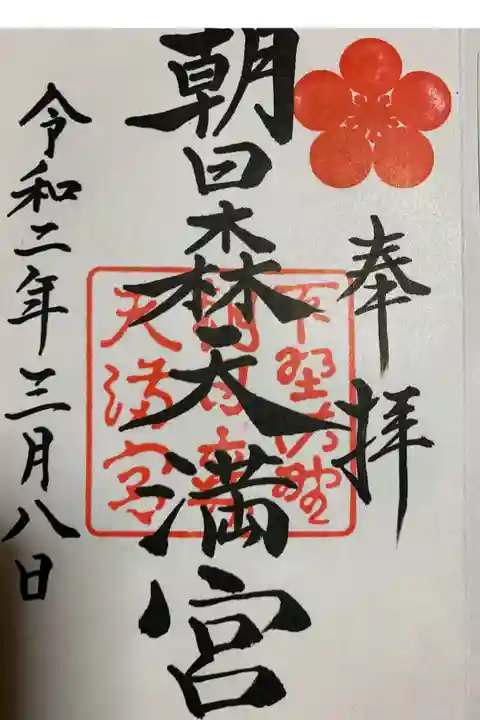 奉拝
朝日森天満宮
下野佐野
朝日森
天満宮
令和二年三月八日